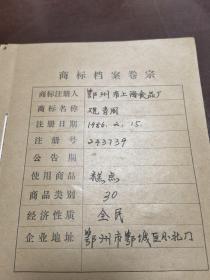 商标档案卷宗
商标注册人 鄂州市上海食品厂
商标名称 观音阁
注册日期 1986.2.15.
注册号 243739
公告期
使用商品 糕点
商品类别 30
经济性质 全民
企业地址 鄂州市鄂城区小北门